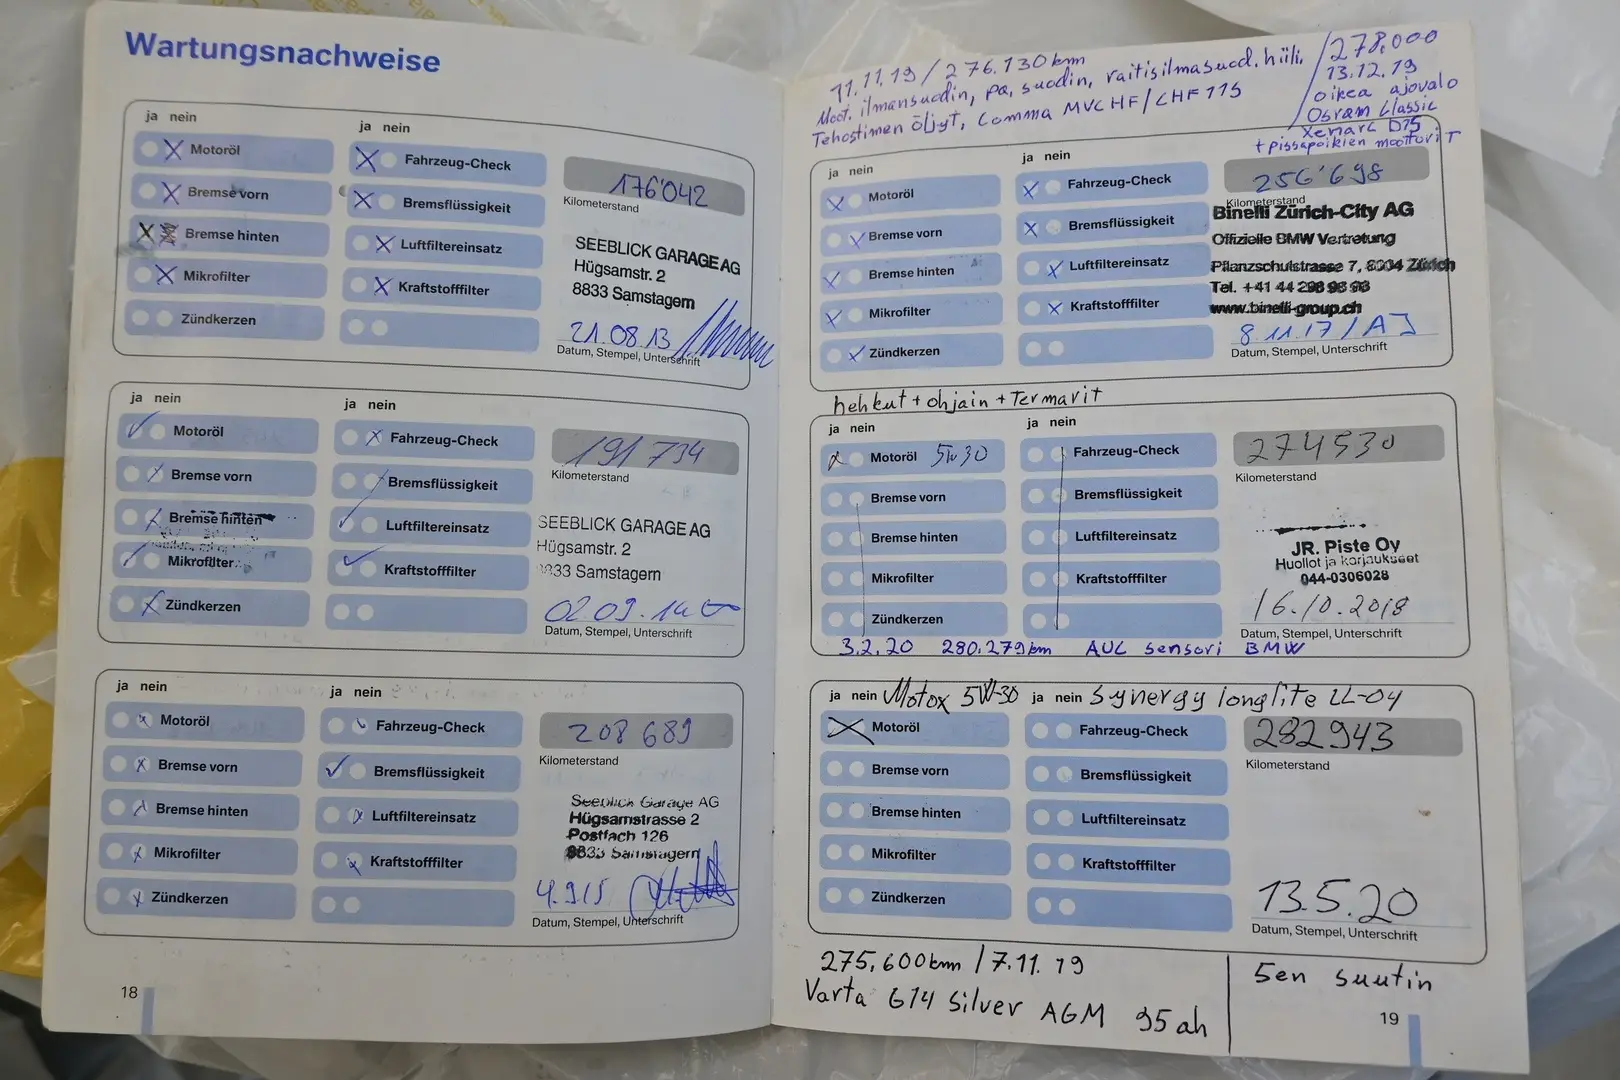 Wartungsnachweise
ja nein
Motoröl
Bremse vorn
Bremse hinten
Mikrofilter
Zündkerzen
ja nein
Fahrzeug-Check
Bremsflüssigkeit
Luftfiltereinsatz
Kraftstofffilter
176'042
Kilometerstand
SEEBLICK GARAGE AG
Hügsamstr. 2
8833 Samstagern
21.08.13
Datum, Stempel, Unterschrift
ja nein
Motoröl
Bremse vorn
Bremse hinten
Mikrofilter
Zündkerzen
ja nein
Fahrzeug-Check
Bremsflüssigkeit
Luftfiltereinsatz
Kraftstofffilter
191 734
Kilometerstand
SEEBLICK GARAGE AG
Hügsamstr. 2
8833 Samstagern
02.09.14
Datum, Stempel, Unterschrift
ja nein
Motoröl
Bremse vorn
Bremse hinten
Mikrofilter
Zündkerzen
ja nein
Fahrzeug-Check
Bremsflüssigkeit
Luftfiltereinsatz
Kraftstofffilter
208 689
Kilometerstand
Seeblick Garage AG
Hügsamstrasse 2
Postfach 126
8833 Samstagern
4.9.15
Datum, Stempel, Unterschrift
18
11.11.19 / 276.130 km
Moot. ilmansuodin, pa, suodin, raitisilmasuod. hiili.
Tehostimen öljyt, Comma MVCHF/CHF 11S
/278,000
13.12.19
oikea ajovalo
Osram Classic
Xenarc D1S
+ pissapoikien moottorit
ja nein
Motoröl
Bremse vorn
Bremse hinten
Mikrofilter
Zündkerzen
ja nein
Fahrzeug-Check
Bremsflüssigkeit
Luftfiltereinsatz
Kraftstofffilter
256'698
Kilometerstand
Binelli Zürich-City AG
Offizielle BMW Vertretung
Pflanzschulstrasse 7, 8004 Zürich
Tel. +41 44 298 98 98
www.binelli-group.ch
8.11.17 / AJ
Datum, Stempel, Unterschrift
hehkut + ohjain + Termarit
ja nein
Motoröl 5W30
Bremse vorn
Bremse hinten
Mikrofilter
Zündkerzen
ja nein
Fahrzeug-Check
Bremsflüssigkeit
Luftfiltereinsatz
Kraftstofffilter
274530
Kilometerstand
JR. Piste Oy
Huollot ja korjaukseet
044-0306028
16.10.2018
Datum, Stempel, Unterschrift
3.2.20 280.279km AUC sensori BMW
ja nein Motox 5W-30 ja nein Synergy longlite LL-04
Motoröl
Bremse vorn
Bremse hinten
Mikrofilter
Zündkerzen
Fahrzeug-Check
Bremsflüssigkeit
Luftfiltereinsatz
Kraftstofffilter
282943
Kilometerstand
13.5.20
Datum, Stempel, Unterschrift
275,600km / 7.11.19
Varta G14 Silver AGM 95ah
5en suutin
19